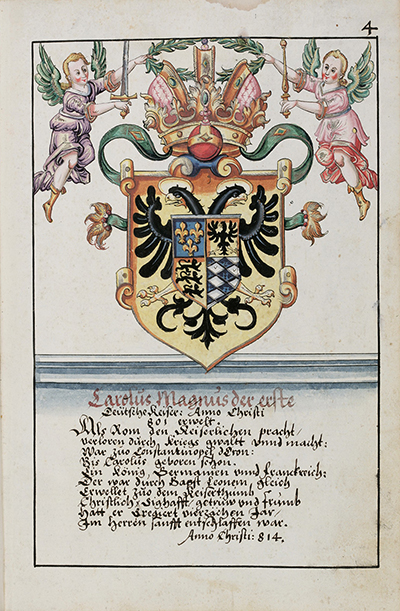 4
Carolus Magnus der erste
Deütsche Keiser: Anno Christi
801 erwelt.
Als Rom den Keiserlichen pracht/
verloren durch kriegs gwallt vnnd macht:
War zuo Constantinopel d'Cron:
Bis Carolus geboren schon.
Ein König Germanien vnnd Franckreich:
Der war durch Bapst Leonem/ gleich
Erwellet zuo dem Keiserthumb
Christlich/ Sighafft/ getrüw vnd frumb
Hatt er Regiert vierzachen Jar/
Im Herren sanfft entschlaffen war.
Anno Christi: 814.